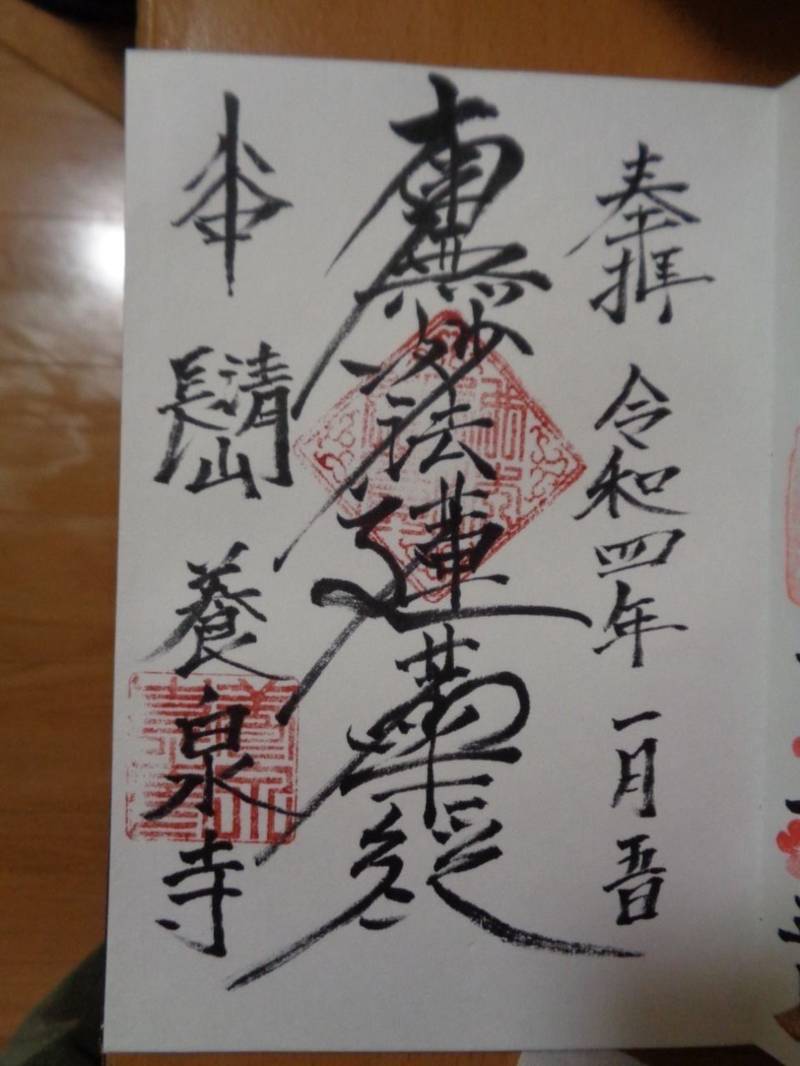 奉拝 令和四年 一月五日
南無妙法蓮華經
長清山 養泉寺